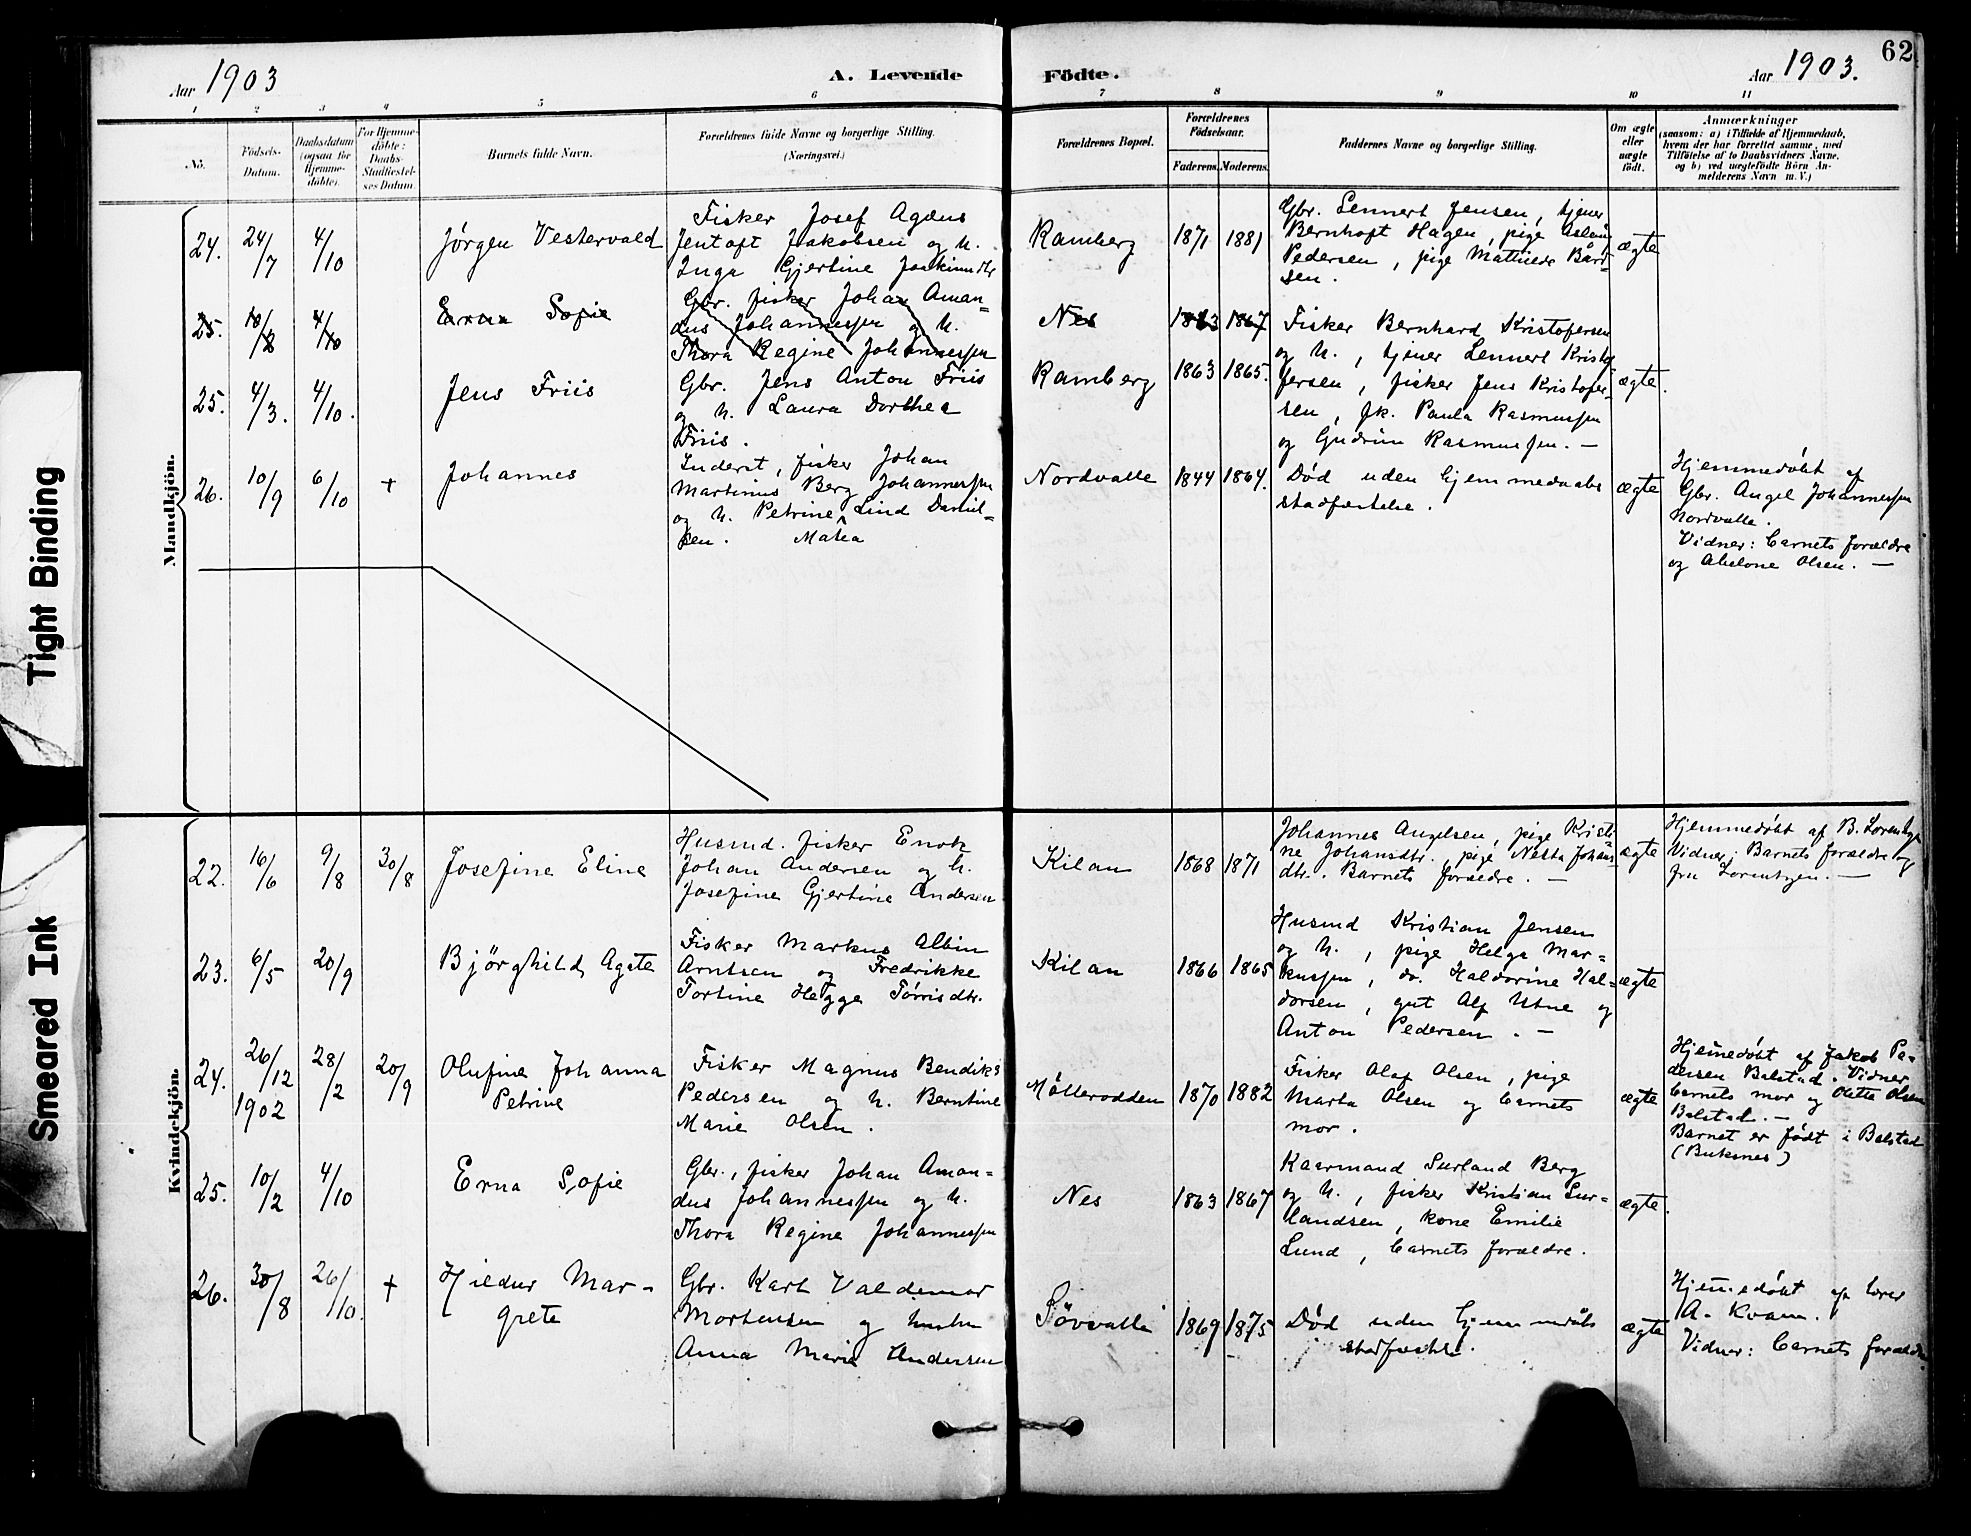 62
Aar 1903
A. Levende
Födte.
Aar 1903.
1 2 3 4 5 6 7 8 9 10 11
No.
Födsels-Datum.
Daabsdatum (ogsaa for Hjemme-döbte).
For Hjemme-döbte: Daabs-Stadfæstel-ses Datum.
Barnets fulde Navn.
Forældrenes fulde Navne og borgerlige Stilling.
(Næringsvei.)
Forældrenes Bopæl.
Forældrenes Födselsaar.
Faderens. Moderens.
Faddernes Navne og borgerlige Stilling.
Om ægte eller uægte födt.
Anmærkninger
(saasom: a) i Tilfælde af Hjemmedaab,
hvem der har forrettet samme, med
Tilföielse af to Daabsvidners Navne,
og b) ved uægtefödte Börn An-
melderens Navn m. V.)
Mandkjön.
24. 24/7 4/10 Jørgen Vestervald
Fisker Josef Agæus
Jentoft Jakobsen og h.
Inga Gjertine Joakimsdtr
Ramberg 1871 1881
Gbr. Lennert Jensen, tjener
Bernhoft Hagen, pige
Pedersen, pige Mathilde Bárd-
sen.
ægte
25. 10/2 4/10 Erna Sofie
Gbr. fisker Johan Aman-
dus Johannessen og h.
Thora Regine Johannessen
Nes 1863 1867
25. 4/3. 4/10. Jens Friis
Gbr. Jens Anton Friis
og h. Laura Dorthea
Friis.
Ramberg 1863 1865.
Fisker Bernhard Kristofersen
og h., tjener Lennert Kristo-
fersen, fisker Jens Kristofer-
sen, fk. Paula Rasmussen
og Gudrun Rasmussen. —
ægte.
26. 10/9 6/10 + Johannes
Inderst, fisker Johan
Martinus Berg Johannessen
og h. Petrine Lind Daniel-
sen. Matea
Nordvalle 1844 1864.
Død uden hjemmedaabs
stadfæstelse.
ægte
Hjemmedøbt af
Gbr. Angel Johannessen
Nordvalle.
Vidner: barnets forældre
og Abelone Olsen. —
Kvindekjön.
22. 16/6 9/8 30/8 Josefine Eline
Husmd. fisker Enok
Johan Andersen og h.
Josefine Gjertine Andersen
Kilan 1868 1871
Johannes Angelsen, pige Kristi-
ne Johansdtr., pige Nesta Johans-
dtr. Barnets forældre. —
ægte
Hjemmedøbt af B. Lorentzen
Vidner: Barnets forældre og
fru Lorentzen. —
23. 6/5 20/9 Bjørghild Agate
Fisker Markus Albin
Arntsen og Fredrikke
Tortine Hegge Tørrisdtr.
Kilan 1866 1865
Husmd Kristian Jensen
og h., pige Helga Mar-
kussen, do. Haldorine Hal-
dorsen, gut Alf Utne og
Anton Pedersen. —
ægte
24. 26/12 1902 28/2 20/9 Olufine Johanna
Petrine
Fisker Magnus Bendiks
Pedersen og h. Berntine
Marie Olsen.
Møllerodden 1870 1882
Fisker Olaf Olsen, pige
Marta Olsen og barnets
mor.
ægte
Hjemmedøbt af Jakob Pe-
dersen Balstad. Vidner
barnets mor og Olette Olsen
Balstad. —
Barnet er født i Balstad
(Buksnes)
25. 10/2 4/10 Erna Sofie
Gbr., fisker Johan Aman-
dus Johannessen og h.
Thora Regine Johannessen
Nes 1863 1867
Kaarmand Surland Berg
og h., fisker Kristian Sur-
landsen, kone Emilie
Lund, barnets forældre.
ægte.
26. 30/8 26/10. + Hildur Mar-
grete
Gbr. Karl Valdemar
Mortensen og hustru
Anna Marie Andersen
1869 1875
Død uden hjemmedåbs
stadfæstelse.
ægte
Hjemmedøbt af lærer
A. Kvam.
Vidner: barnets forældre
Tight Binding
Smeared Ink